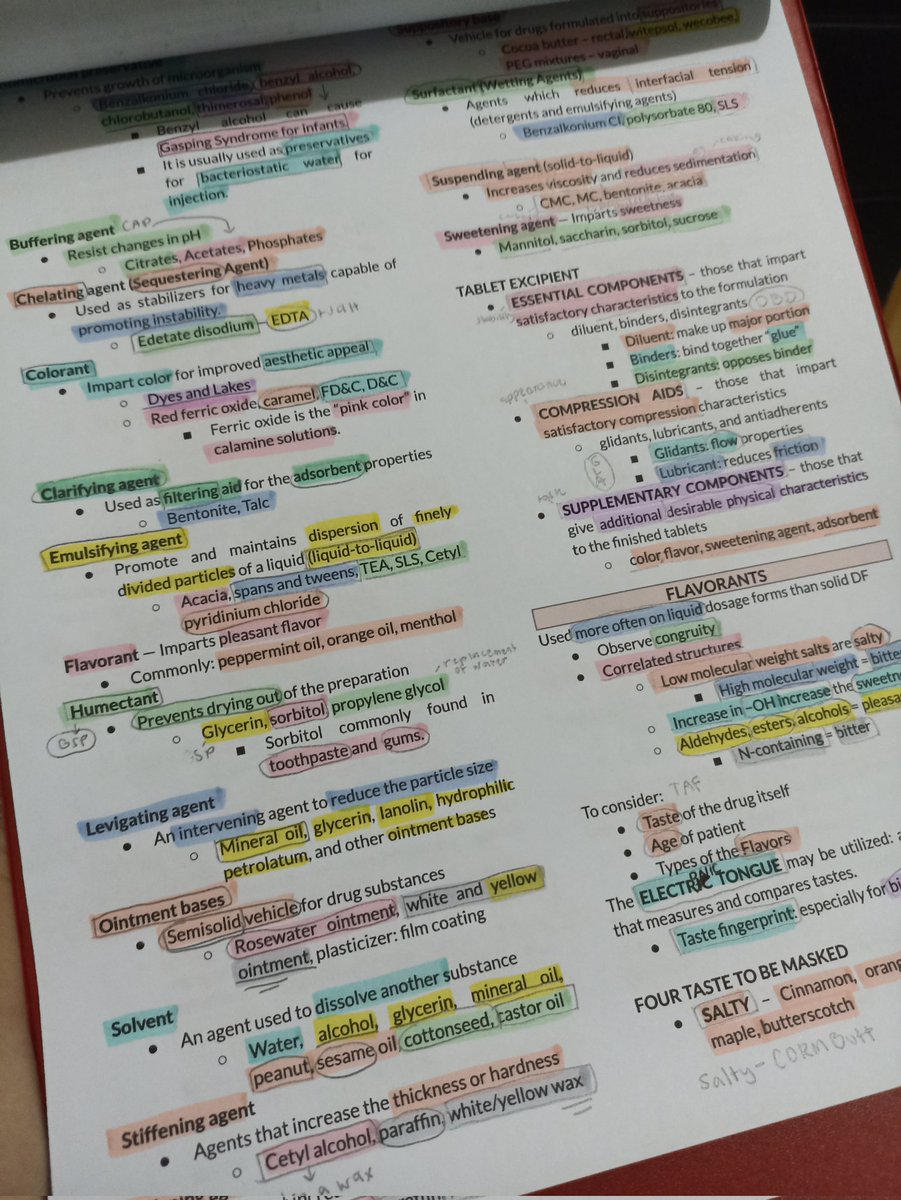 Prevents growth of microorganism
Benzalkonium chloride, benzyl alcohol,
chlorobutanol, thimerosal, phenol
Benzyl alcohol can cause
Gasping Syndrome for infants.
It is usually used as preservatives
for bacteriostatic water for
injection.
Buffering agent CAP
Resist changes in pH
Citrates, Acetates, Phosphates
Chelating agent (Sequestering Agent)
Used as stabilizers for heavy metals capable of
promoting instability.
Edetate disodium – EDTA
Colorant
Impart color for improved aesthetic appeal
Dyes and Lakes
Red ferric oxide, caramel, FD&C, D&C
Ferric oxide is the "pink color" in
calamine solutions.
Clarifying agent
Used as filtering aid for the adsorbent properties
Bentonite, Talc
Emulsifying agent
Promote and maintains dispersion of finely
divided particles of a liquid (liquid-to-liquid)
Acacia, spans and tweens, TEA, SLS, Cetyl
pyridinium chloride
Flavorant – Imparts pleasant flavor
Commonly: peppermint oil, orange oil, menthol
Humectant
replacement of water
Prevents drying out of the preparation
GSP
Glycerin, sorbitol propylene glycol
SP
Sorbitol commonly found in
toothpaste and gums.
Levigating agent
An intervening agent to reduce the particle size
Mineral oil, glycerin, lanolin, hydrophilic
petrolatum, and other ointment bases
Ointment bases
Semisolid vehicle for drug substances
Rosewater ointment, white and yellow
ointment, plasticizer: film coating
Solvent
An agent used to dissolve another substance
Water, alcohol, glycerin, mineral oil,
peanut, sesame oil cottonseed, castor oil
Stiffening agent
Agents that increase the thickness or hardness
Cetyl alcohol, paraffin, white/yellow wax
a wax
Suppository base
Vehicle for drugs formulated into suppositories
Cocoa butter – rectal, witepsol, wecobee,
PEG mixtures – vaginal
Surfactant (Wetting Agents)
Agents which reduces interfacial tension
(detergents and emulsifying agents)
Benzalkonium Cl, polysorbate 80, SLS
Suspending agent (solid-to-liquid)
Increases viscosity and reduces sedimentation
CMC, MC, bentonite, acacia
Sweetening agent – Imparts sweetness
Mannitol, saccharin, sorbitol, sucrose
TABLET EXCIPIENT
ESSENTIAL COMPONENTS – those that impart
satisfactory characteristics to the formulation
diluent, binders, disintegrants DBD
Diluent: make up major portion
Binders: bind together "glue"
Disintegrants: opposes binder
appearance
COMPRESSION AIDS – those that impart
satisfactory compression characteristics
glidants, lubricants, and antiadherents
GLA
Glidants: flow properties
Lubricant: reduces friction
SUPPLEMENTARY COMPONENTS – those that
give additional desirable physical characteristics
to the finished tablets
color, flavor, sweetening agent, adsorbent
FLAVORANTS
Used more often on liquid dosage forms than solid DF
Observe congruity
Correlated structures
Low molecular weight salts are salty
High molecular weight = bitter
Increase in –OH increase the
Aldehydes, esters, alcohols =
N-containing = bitter
To consider: TAF
Taste of the drug itself
Age of patient
Types of the Flavors
The ELECTRIC TONGUE may be utilized:
that measures and compares tastes.
Taste fingerprint: especially for
FOUR TASTE TO BE MASKED
SALTY – Cinnamon,
maple, butterscotch
Salty - CORMButt